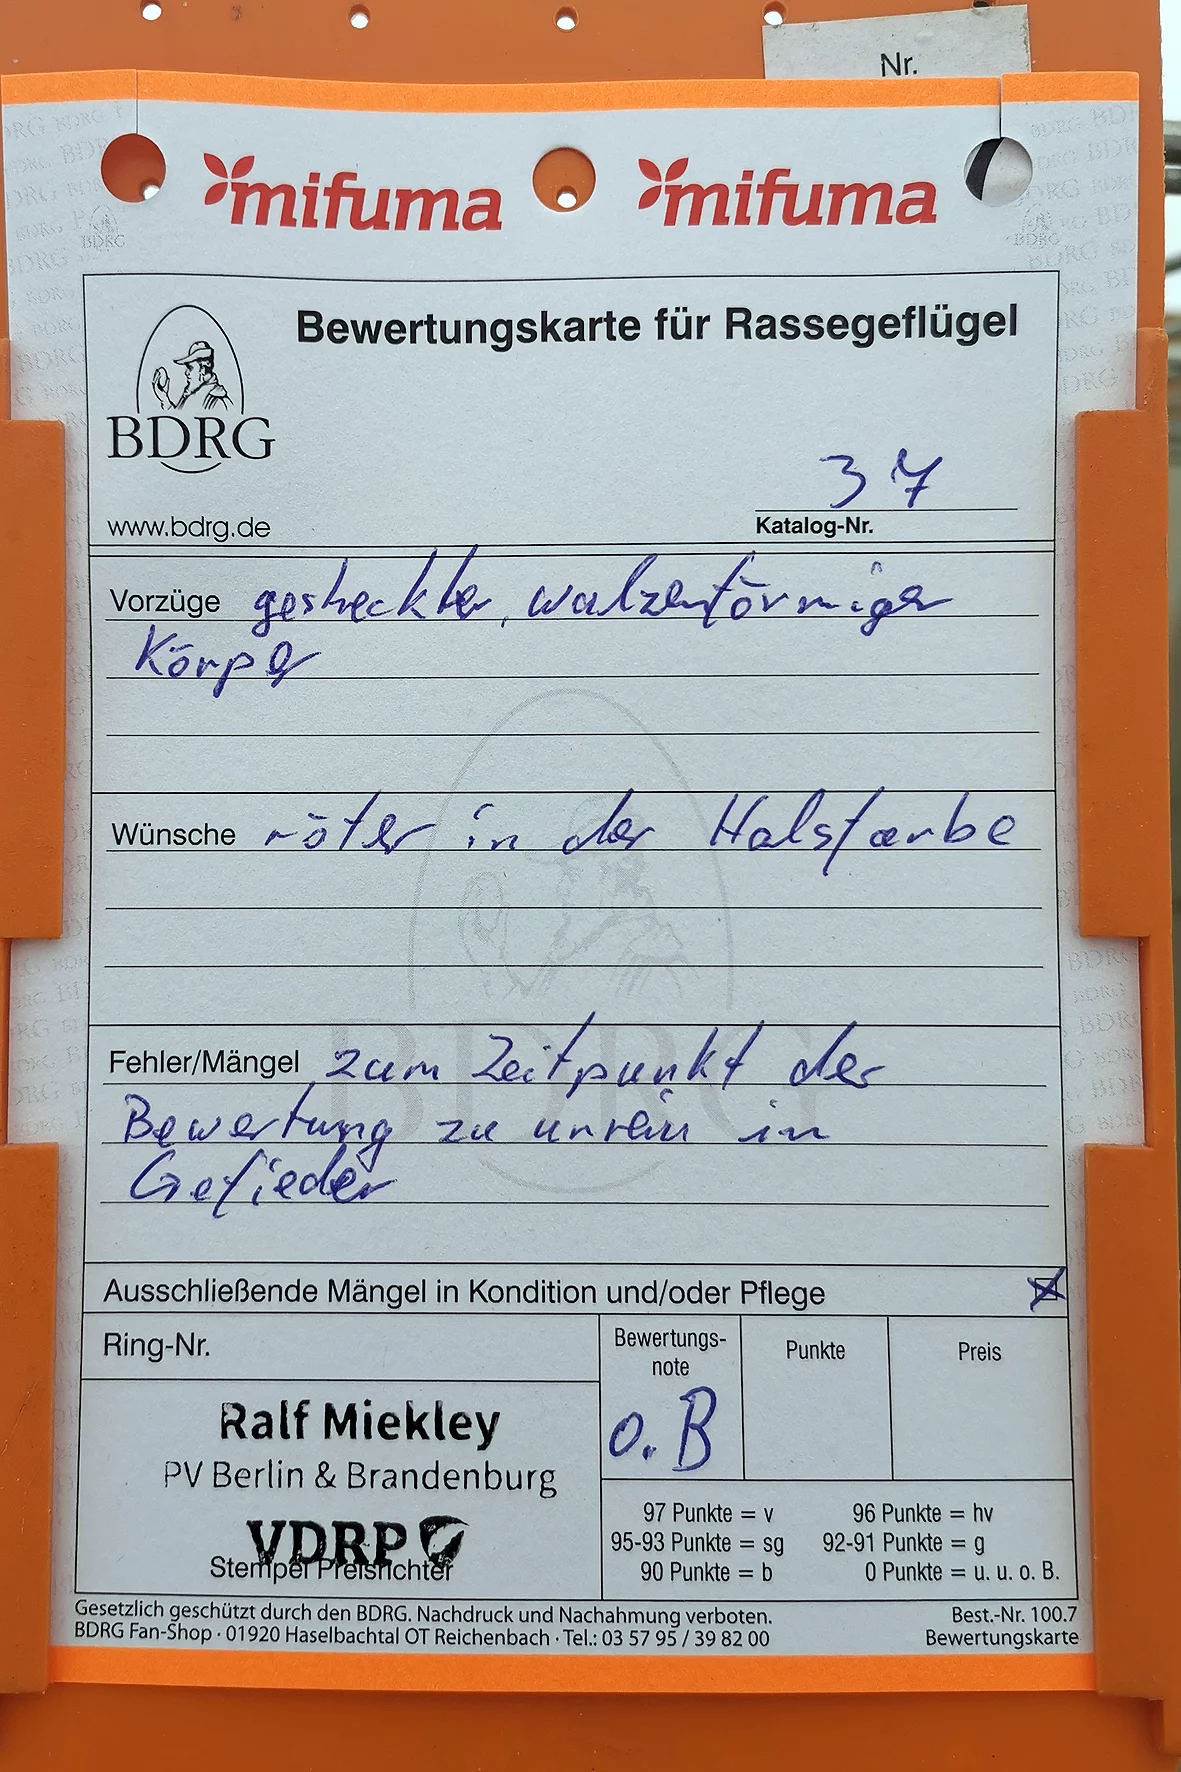 Nr.
mifuma mifuma
BDRG
Bewertungskarte für Rassegeflügel
BDRG
www.bdrg.de
37
Katalog-Nr.
Vorzüge gestreckter, walzenförmiger
Körper
Wünsche röter in der Halsfarbe
Fehler/Mängel zum Zeitpunkt der
Bewertung zu unrein in
Gefieder
Ausschließende Mängel in Kondition und/oder Pflege
Ring-Nr.
Bewertungs-
note
Punkte
Preis
o.B
Ralf Miekley
PV Berlin & Brandenburg
VDRP
Stempel Preisrichter
97 Punkte = v 96 Punkte = hv
95-93 Punkte = sg 92-91 Punkte = g
90 Punkte = b 0 Punkte = u. u. o. B.
Gesetzlich geschützt durch den BDRG. Nachdruck und Nachahmung verboten. Best.-Nr. 100.7
BDRG Fan-Shop · 01920 Haselbachtal OT Reichenbach · Tel.: 03 57 95 / 39 82 00 Bewertungskarte